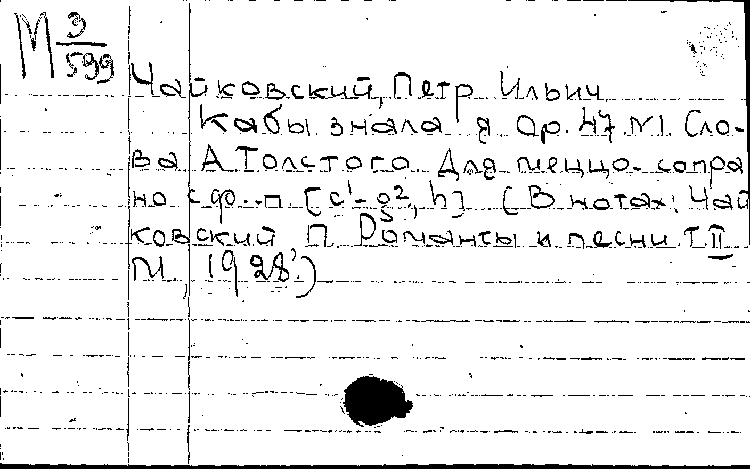 М 3/599
Чайковский, Петр Ильич
Кабы знала я Op. 47 N1. Сло-
ва А Толстого Для меццо-сопра
но с ф.-п [c¹-g², h] (В нотах: Чай
ковский П Романсы и песни Т II
М, 1928.)